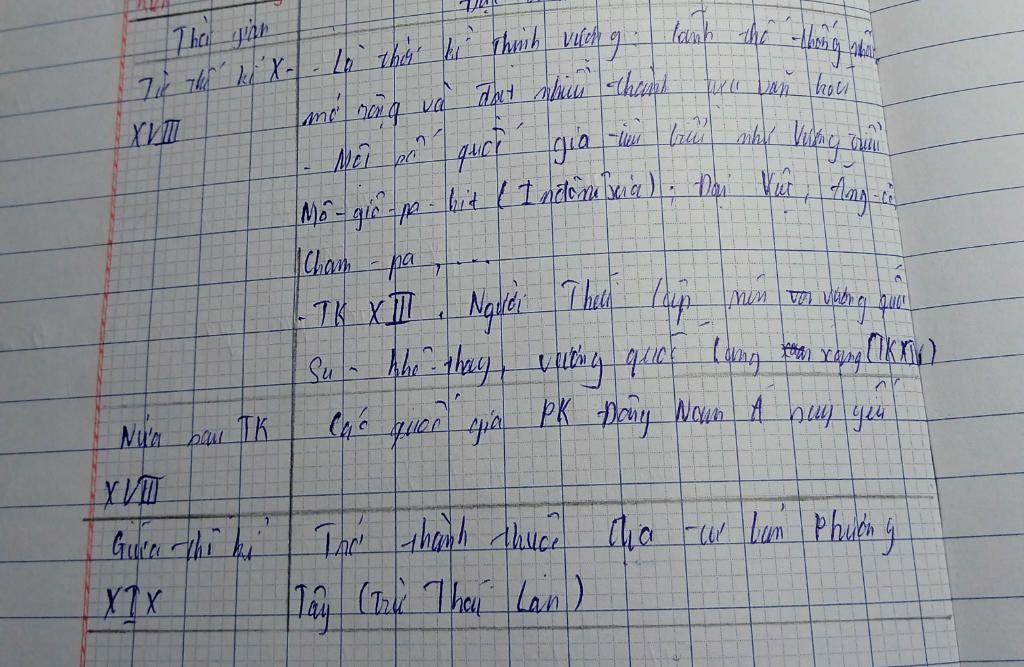 Thời gian
Từ thế kỉ X - - Là thời kì thịnh vượng: lãnh thổ thống nhất,
XVIII mở rộng và đạt nhiều thành tựu văn hoá
- Một số quốc gia tiêu biểu như Vương triều
Mô-giô-pa-hit (Inđônêxia), Đại Việt, Ăng-co
Cham-pa, ...
- TK XIII, Người Thái lập nên vương quốc
Su-khô-thay, vương quốc Lang xang (TK XIV)
Nửa sau TK Các quốc gia PK Đông Nam Á suy yếu
XVIII
Giữa thế kỉ Trở thành thuộc địa tư bản Phương
XIX Tây (trừ Thái Lan)